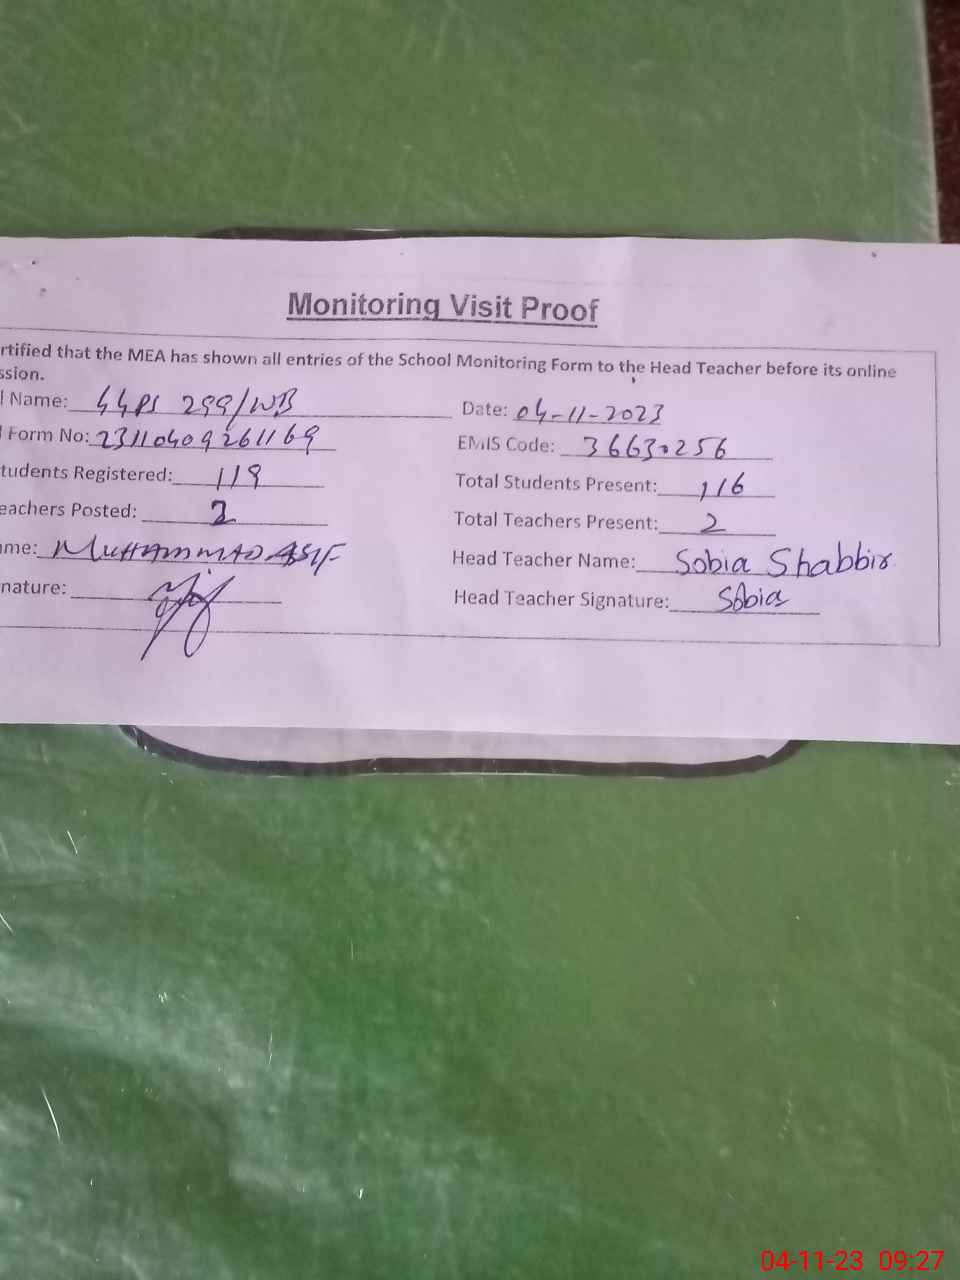 Monitoring Visit Proof
rtified that the MEA has shown all entries of the School Monitoring Form to the Head Teacher before its online
ssion.
l Name: GGPS 299/WB Date: 04-11-2023
Form No: 23110409261169 EMIS Code: 36630256
tudents Registered: 119 Total Students Present: 116
eachers Posted: 2 Total Teachers Present: 2
me: MUHAMMAD ASIF Head Teacher Name: Sobia Shabbir
nature: Head Teacher Signature: Sobia
04-11-23 09:27